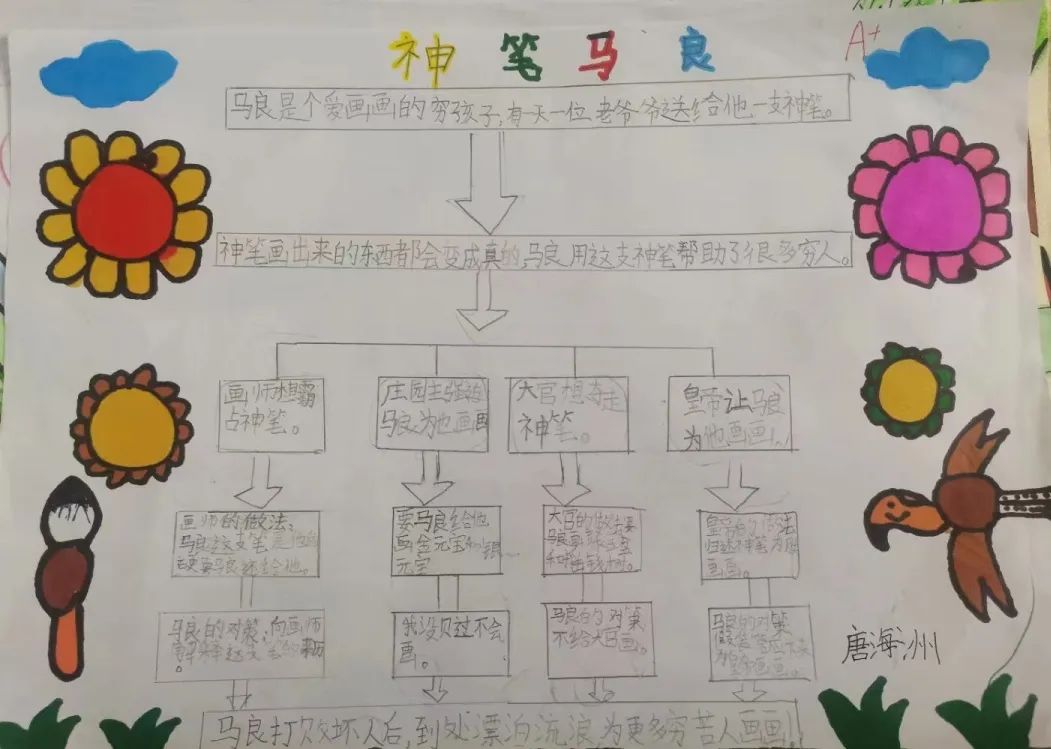 A+
神笔马良
马良是个爱画画的穷孩子,有一天一位老爷爷送给他一支神笔。
神笔画出来的东西都会变成真的,马良用这支神笔帮助了很多穷人。
画师想霸
占神笔。
庄园主强迫
马良为他画画
大官想夺走
神笔。
皇帝让马良
为他画画。
画师的做法:
马良这支笔是他的
要马良还给他。
要马良给他
画金元宝和银
元宝
大官的做法要
马良画
和摇钱树。
皇帝的做法
神笔为
画画。
马良的对策:向画师
解释这支
我没见过不会
画。
马良的对策
不给大官画。
马良的对策
假装答应下来
为皇帝画画。
唐海洲
马良打败坏人后,到处漂泊流浪,为更多穷苦人画画!